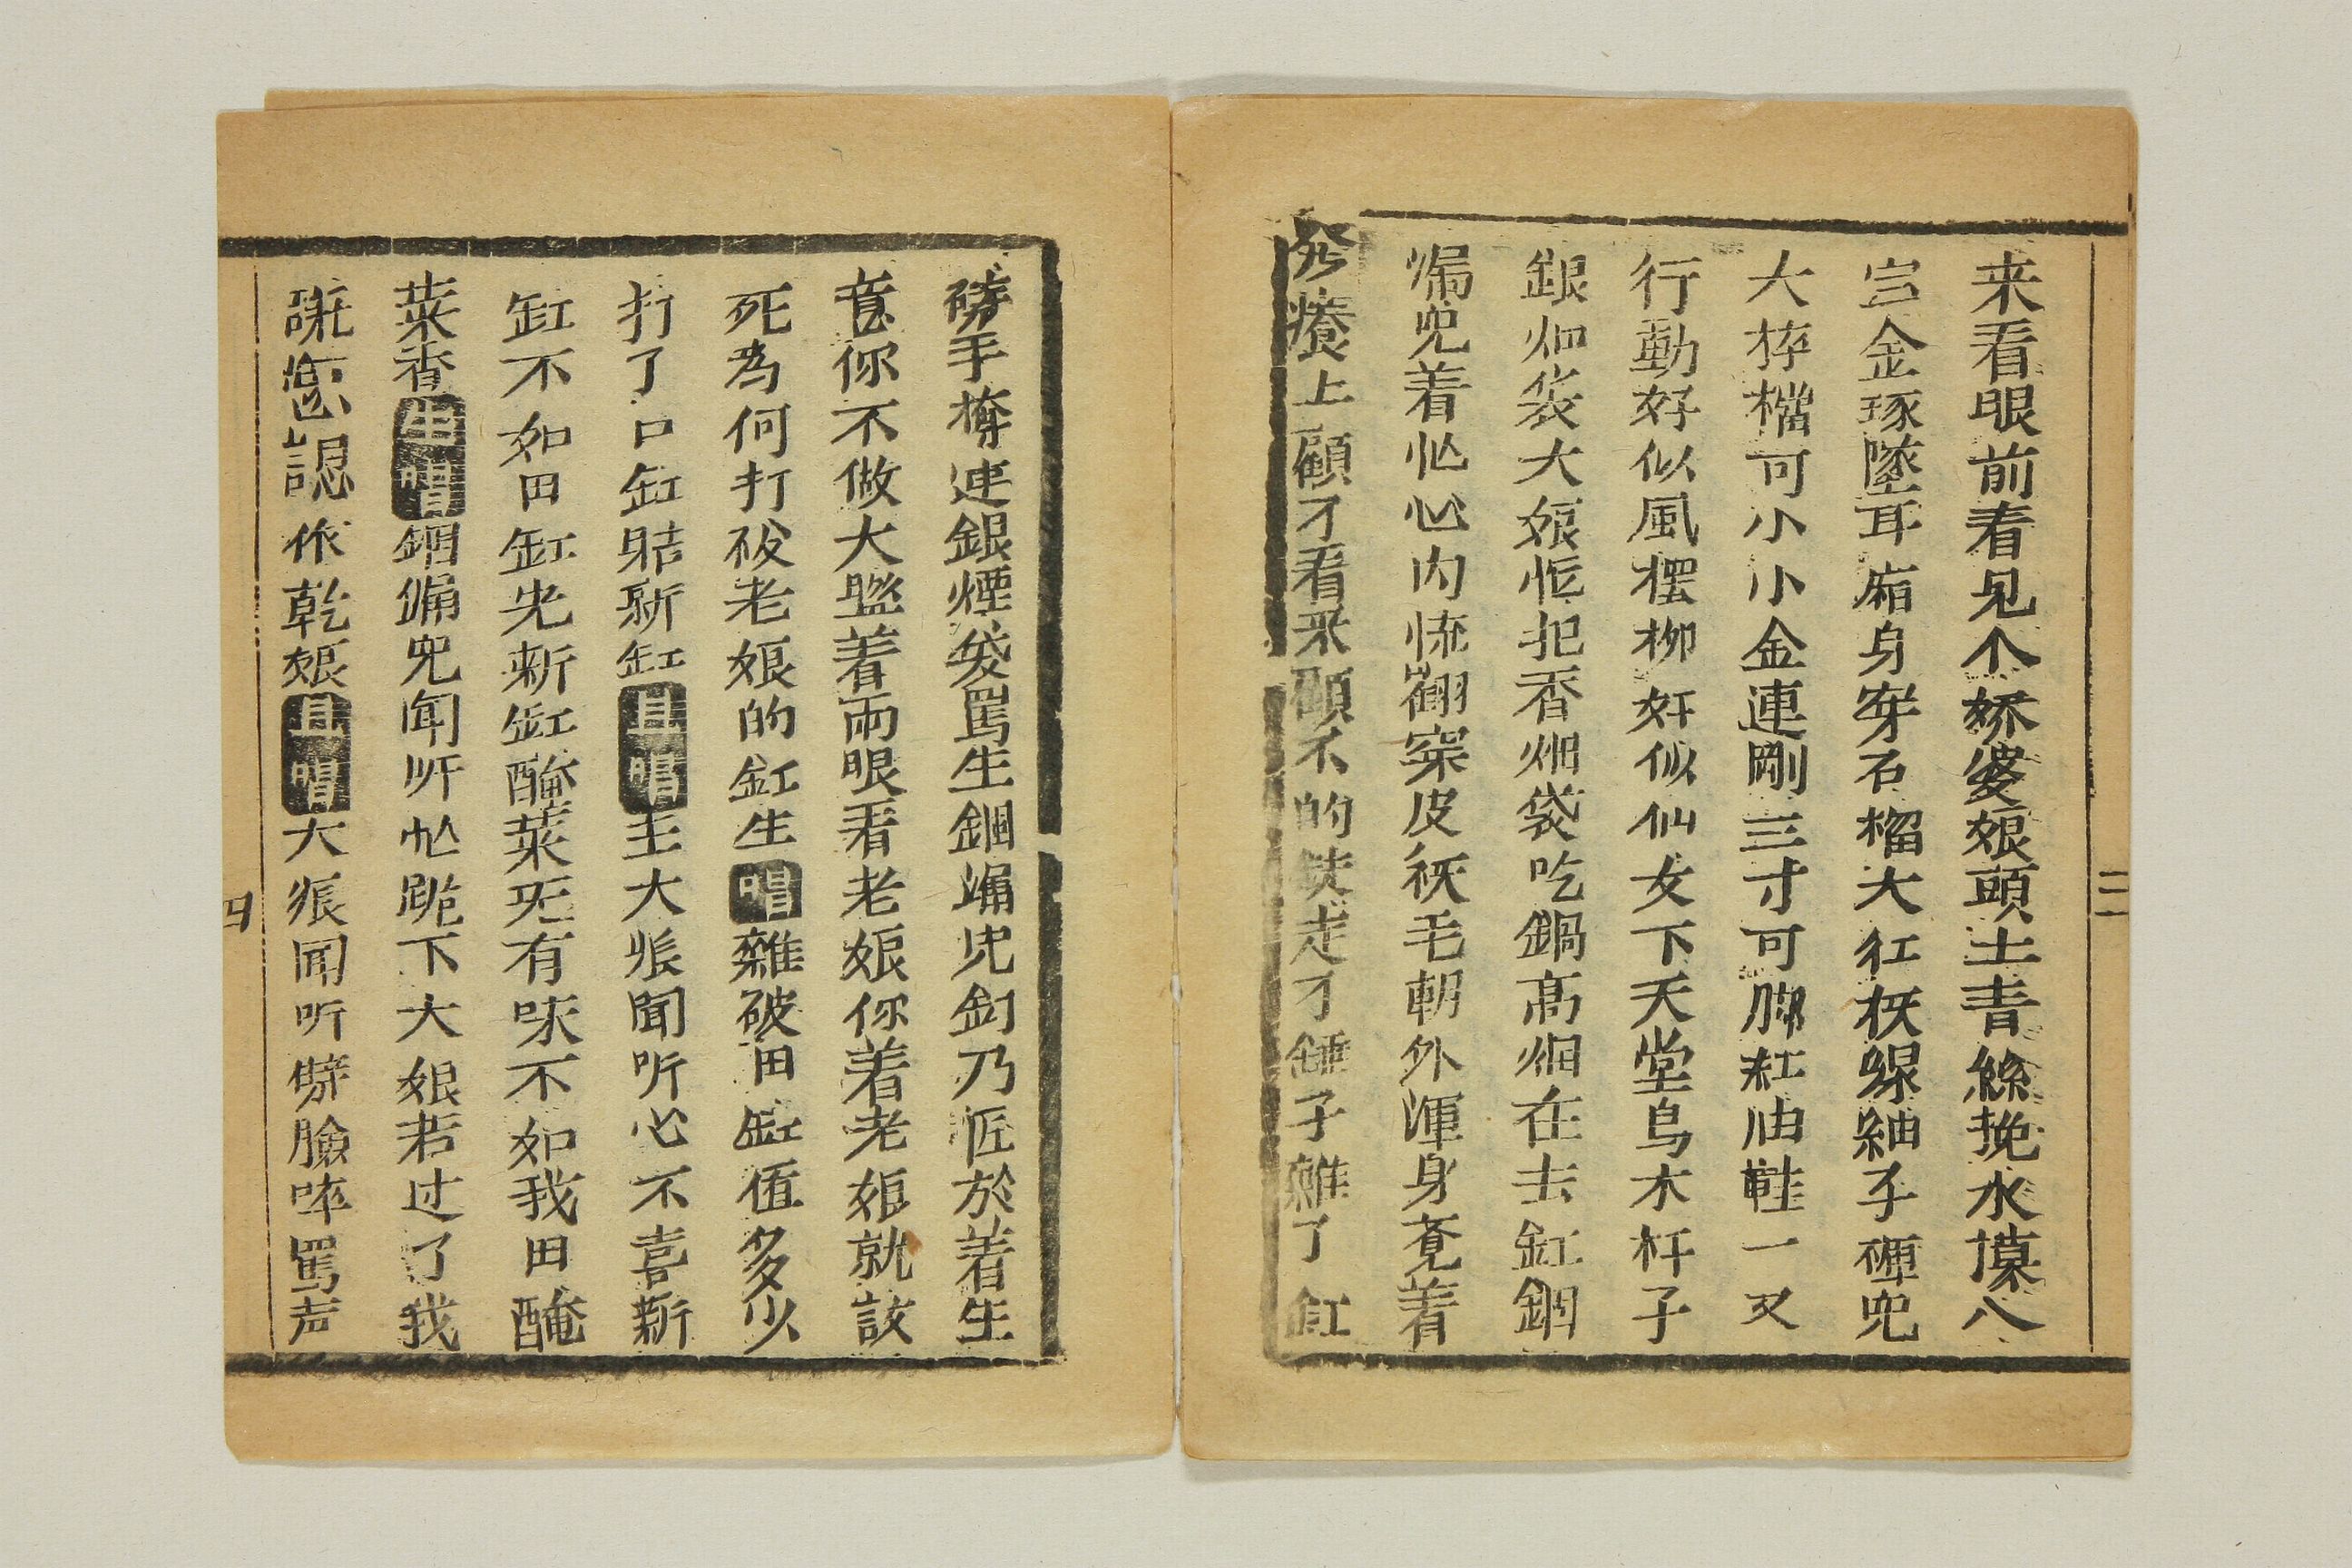 来看眼前看见个娇婆娘頭土青絲挽水墳八
金琢墜耳廂身穿石榴大红袄绿紬子褲兜
大捽檔可小小金連剛三寸可脚紅油鞋一又
行動好似風摆柳好似仙女下天堂烏木杆子
銀烟袋大娘怄犯香烟袋吃鍋高烟在去缸錮
漏兜着忙心内慌翻穿皮袄毛朝外渾身竟着
癢上顧才看来顧不的走才錘子雜了缸
三
手連銀煙袋罵生錮漏兜乃匠於着生
意你不做大盬着兩眼看老娘你着老娘就該
死為何打破老娘的缸生唱雜破田缸值多少
打了口缸賠新缸旦唱王大娘聞听心不喜新
缸不如田缸光新缸醃菜旡有味不如我田醃
菜香生唱錮漏兜聞听忙跪下大娘若过了我
認作乾娘旦唱大娘聞听劈臉啐罵声
四